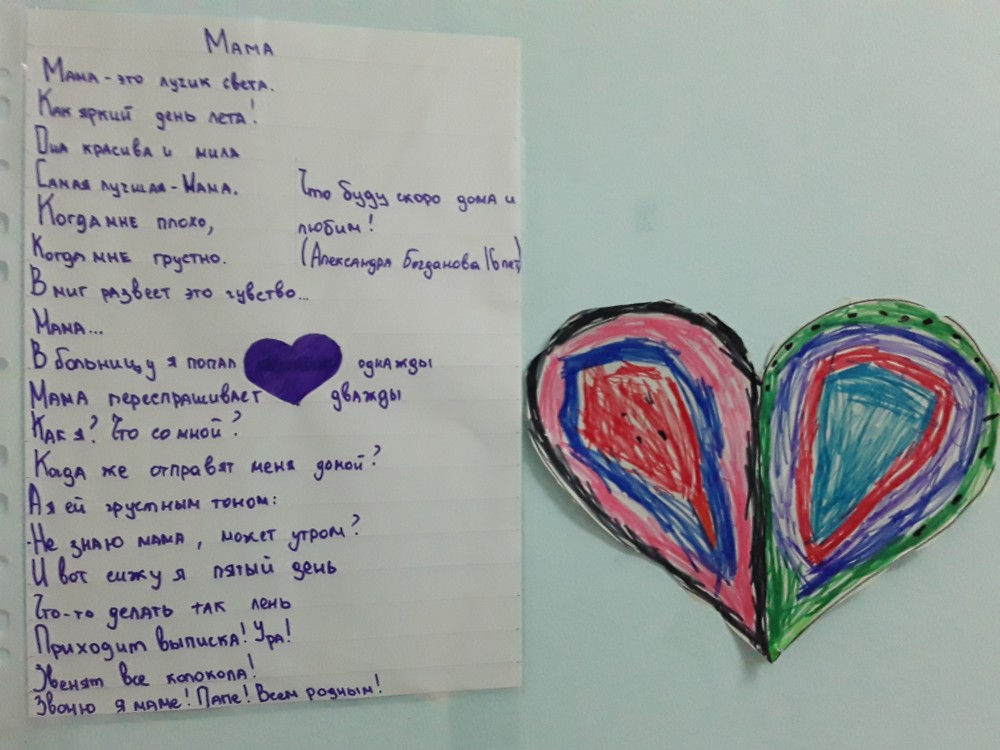 Мама
Мама - это лучик света.
Как яркий день лета!
Она красива и мила
Самая лучшая - Мама.
Когда мне плохо,
Когда мне грустно.
В миг развеет это чувство...
Мама...
В больницу я попал однажды
Мама переспрашивает дважды
Как я? Что со мной?
Када же отправят меня домой?
А я ей грустным тоном:
-Не знаю мама, может утром?
И вот сижу я пятый день
Что-то делать так лень
Приходит выписка! Ура!
Звенят все колокола!
Звоню я маме! Папе! Всем родным!
Что буду скоро дома и
любим!
(Александра Богданова 16 лет)